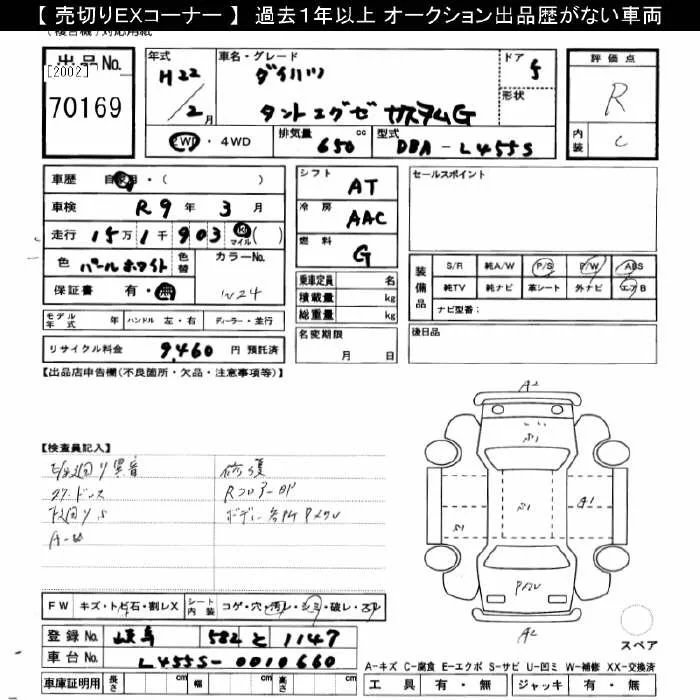 【 売切りEXコーナー 】 過去１年以上 オークション出品歴がない車両
出品No.
[2002]
70169
年式
H22
/2月
車名・グレード
ダイハツ
タントエグゼ カスタムG
ドア
5
形状
2WD・4WD
排気量
650 cc
型式
DBA-L455S
評価点
R
内装
C
車歴 自家用・( )
車検 R9年 3月
走行 15万1千903 km マイル ( )
色 パールホワイト
色替
カラーNo.
W24
保証書 有・無
シフト
AT
冷房
AAC
燃料
G
乗車定員 名
積載量 kg
総重量 kg
名変期限
月 日
セールスポイント
装備品
S/R 純A/W P/S P/W ABS
純TV 純ナビ 革シート 外ナビ エアB
ナビ型番：
後日品
モデル年式 年 ハンドル 左・右 ディーラー・並行
リサイクル料金 9,460 円 預託済
【出品店申告欄(不良箇所・欠品・注意事項等)】
【検査員記入】
異音
修復
下回りS
FW キズ・トビ石・割レX
シート内装 コゲ・穴・汚レ・シミ・破レ・スレ
登録No. 岐阜 582 と 1147
車台No. L455S-0010660
車庫証明用 長さ cm 幅 cm 高さ cm
A2
A1
A2
スペア
A-キズ C-腐食 E-エクボ S-サビ U-凹ミ W-補修 XX-交換済
工具 有・無 ジャッキ 有・無